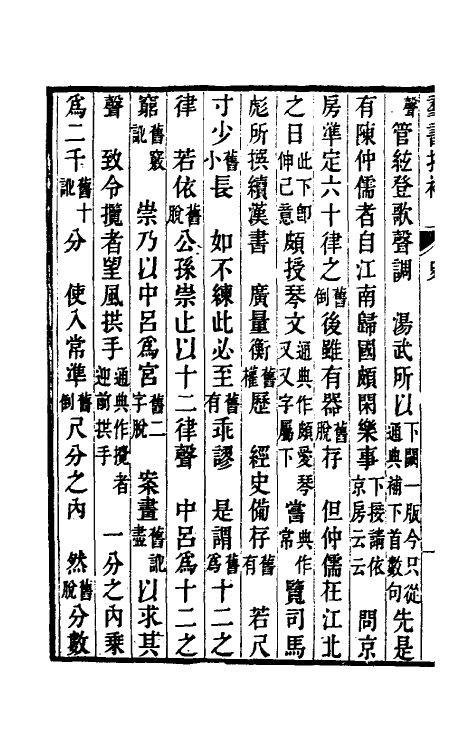 羣書拾補
聲 管絃登歌聲調 湯武所以下闕一版今只從通典補下首數句先是
有陳仲儒者自江南歸國頗閑樂事下接請依京房云云 問京
房準定六十律之舊倒後雖有器舊脫存 但仲儒在江北
之日此下即伸己意頗授琴文通典作頗愛琴又又字屬下嘗典作常覽司馬
彪所撰續漢書 廣量衡舊權歷 經史備存舊有 若尺
寸少舊小長 如不練此必至舊有乖謬 是謂舊爲十二之
律 若依舊脫公孫崇止以十二律聲 中呂爲十二之
窮舊竅訛 崇乃以中呂爲宮舊二字脫 案畫舊訛盡以求其
聲 致令攬者望風拱手通典作攬者迎前拱手 一分之內乘
爲二千舊十訛分 使入常準舊倒尺分之內 然舊脫分數